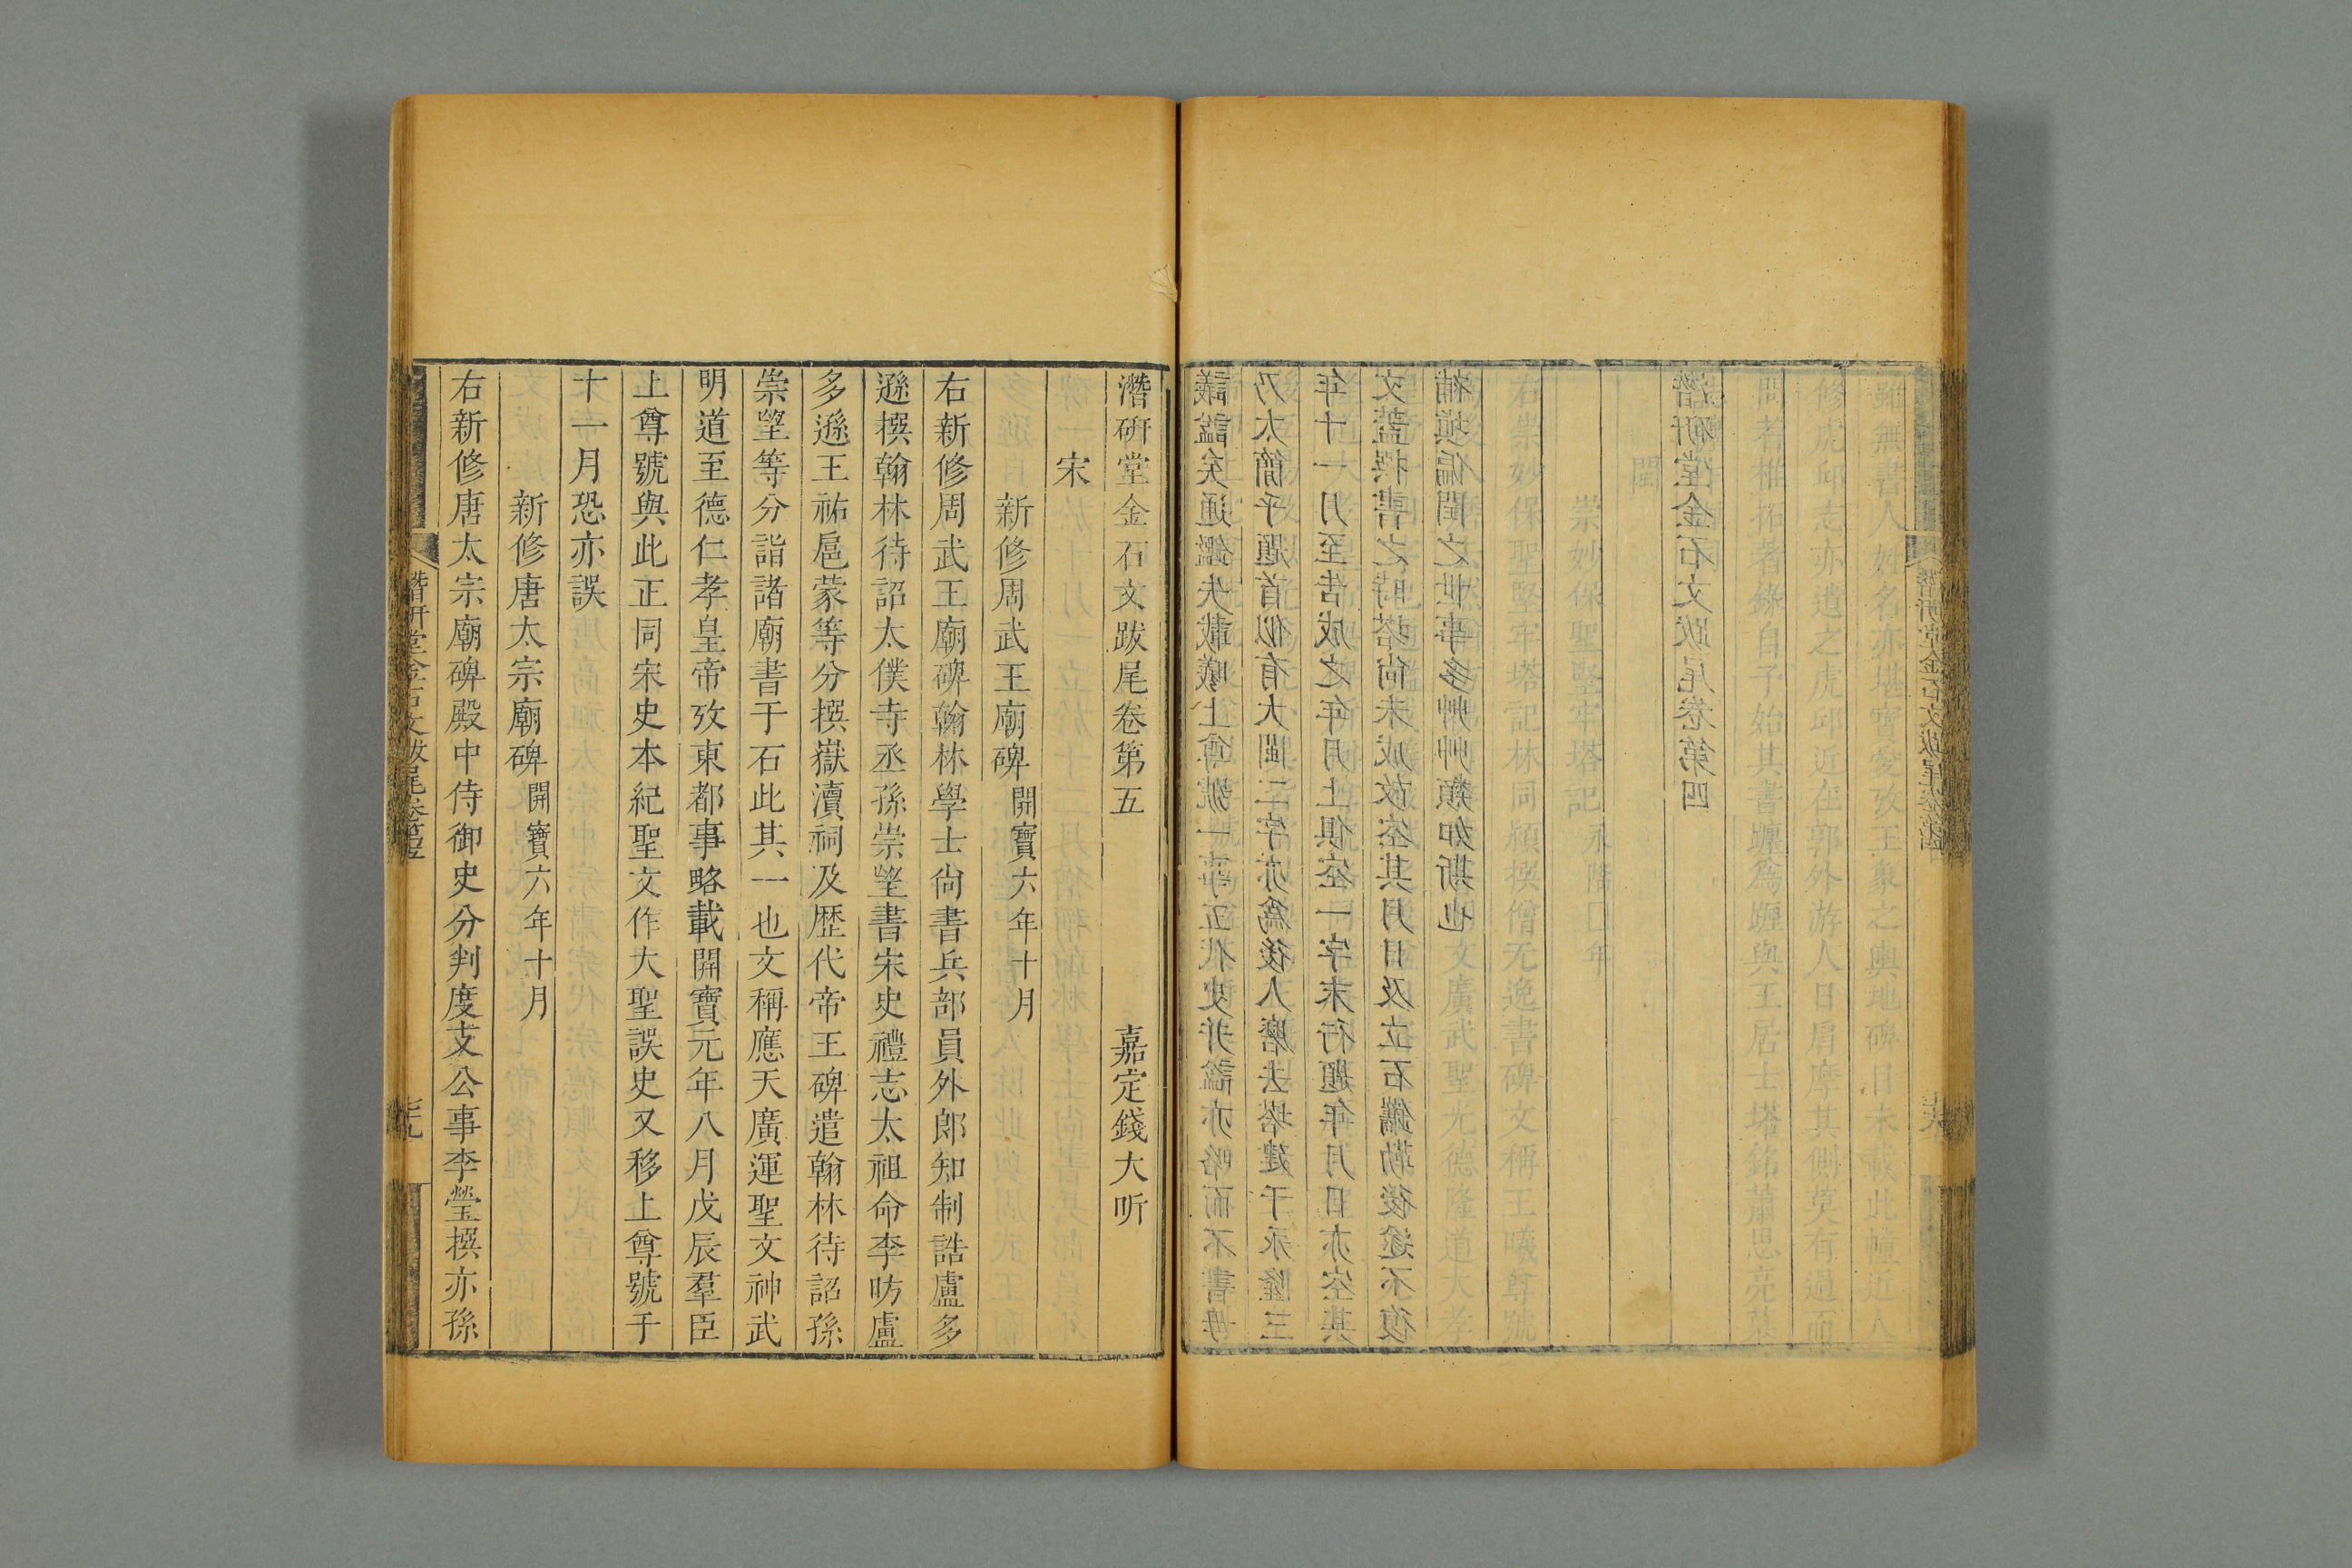 雖無書人姓名亦堪寶愛攷王象之輿地碑目未載此幢近人
修虎邱志亦遺之虎邱近在郭外游人日肩摩其側莫有過而
問者椎拓者錄自予始其書躔為躔與王居士塔銘蕭思亮墓
閩
崇妙保聖堅牢塔記永隆年
右崇妙保聖堅牢塔記林同穎撰僧无逸書碑文稱王曦尊號
文廣武聖光德隆道大孝
議謚矣通鑑失載曦上尊號一事五代史并謚亦略而不書毋
乃太簡乎題首似有大閩二字亦爲後人磨去塔建于永隆三
年十一月至告成之年月上俱空一字末行題年月日亦空其
文蓋撰書之時塔尙未成故空其月日及立石鐫勒後遂不復
補填偏閏之世事多艸艸類如斯也
潛研堂金石文跋尾卷第四
潛研堂金石文跋尾卷第五 嘉定錢大昕
宋
新修周武王廟碑開寶六年十月
右新修周武王廟碑翰林學士尙書兵部員外郎知制誥盧多
遜撰翰林待詔太僕寺丞孫崇望書宋史禮志太祖命李昉盧
多遜王祐扈蒙等分撰嶽瀆祠及歷代帝王碑遣翰林待詔孫
崇望等分詣諸廟書于石此其一也文稱應天廣運聖文神武
明道至德仁孝皇帝攷東都事略載開寶元年八月戊辰羣臣
上尊號與此正同宋史本紀聖文作大聖誤史又移上尊號于
十一月恐亦誤
新修唐太宗廟碑開寶六年十月
右新修唐太宗廟碑殿中侍御史分判度支公事李瑩撰亦孫
潛研堂金石文跋尾卷第五